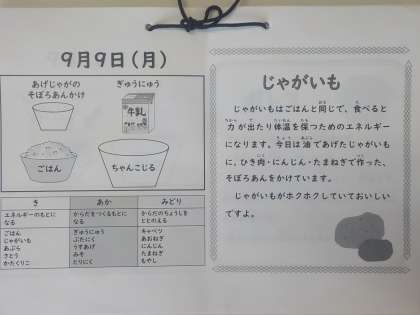 9月9日(月)
あげじゃがの
そぼろあんかけ
ぎゅうにゅう
牛乳
ごはん
ちゃんこじる
き
あか
みどり
エネルギーのもとに
なる
からだをつくるもとに
なる
からだのちょうしを
ととのえる
ごはん
じゃがいも
あぶら
さとう
かたくりこ
ぎゅうにゅう
ぶたにく
うすあげ
みそ
とりにく
キャベツ
あおねぎ
にんじん
たまねぎ
もやし
じゃがいも
じゃがいもはごはんと同じで、食べると
力が出たり体温を保つためのエネルギー
になります。今日は油であげたじゃがいも
に、ひき肉・にんじん・たまねぎで作った、
そぼろあんをかけています。
じゃがいもがホクホクしていておいしい
ですよ。